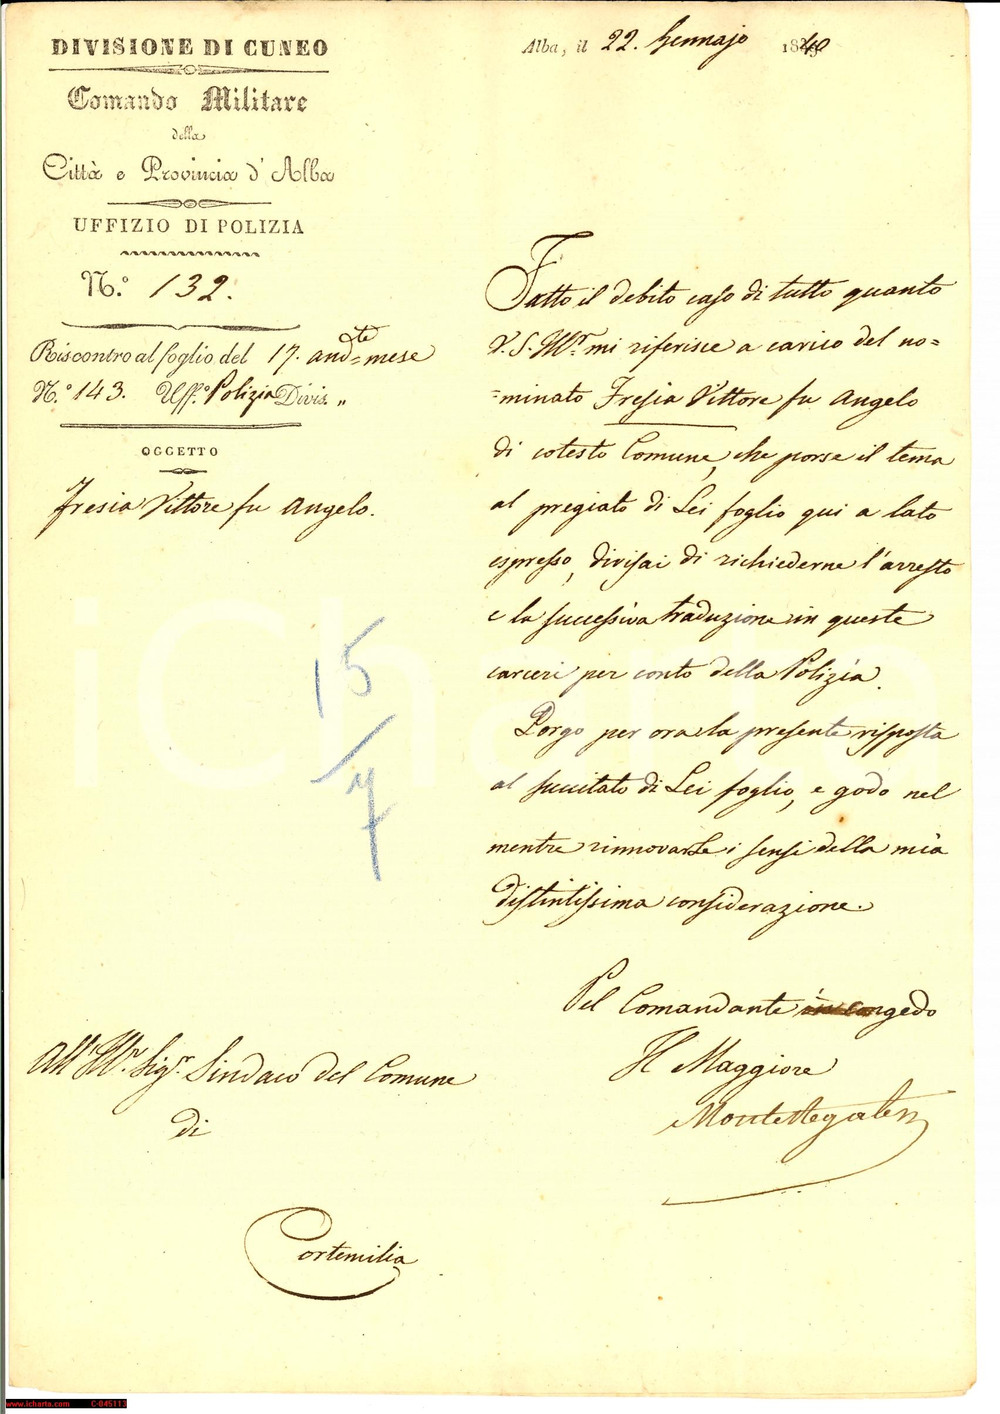 DIVISIONE DI CUNEO
Comando Militare
della
Città e Provincia d'Alba
UFFIZIO DI POLIZIA
N.º 132.
Riscontro al foglio del 17. andte mese
N.º 143. Uff.º Polizia Divis. „
OGGETTO
Fresia Vittore fu Angelo.
Alba, il 22. Gennajo 1840
Fatto il debito caso di tutto quanto
V. S. Ill.ma mi riferisce a carico del no=
=minato Fresia Vittore fu Angelo
di cotesto Comune, che porse il tema
al pregiato di Lei foglio qui a lato
espresso, divisai di richiederne l'arresto
e la successiva traduzione in queste
carceri per conto della Polizia.
Porgo per ora la presente risposta
al succitato di Lei foglio, e godo nel
mentre rinnovarLe i sensi della mia
distintissima considerazione.
Pel Comandante in congedo
Il Maggiore
All' Ill.mo Sig.r Sindaco del Comune
di
Cortemilia
15
7
iCharta
www.icharta.com C-045113